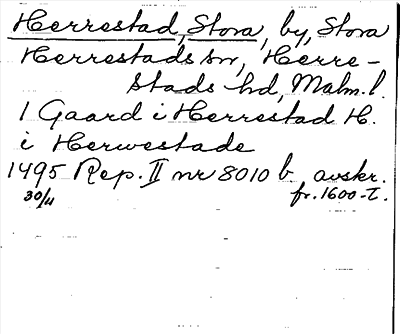 Herrestad, Stora, by, Stora
Herrestads sn, Herre-
stads hd, Malm. l.
1 Gaard i Herrestad H.
i Herwestade
1495 Rep. II nr 8010 b, avskr.
30/11 fr. 1600-t.